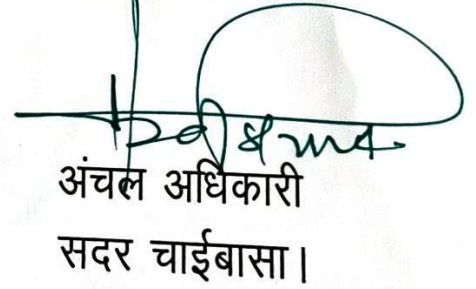 अंचल अधिकारी
सदर चाईबासा।